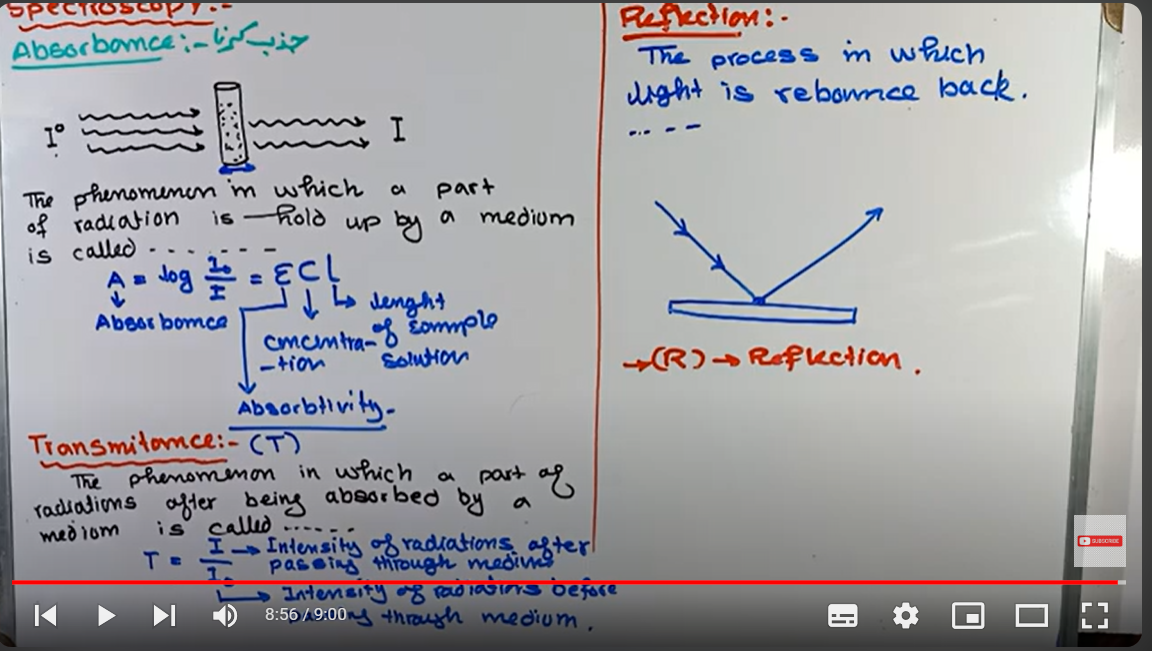 Spectroscopy:-
Absorbamce:- جذب کرنا
I°
I
The phenomenon in which a part
of radiation is hold up by a medium
is called - - - - - - -
A = log I₀/I = ε C l
Absorbamce
lenght
of sample
solution
cmcmtra-
-tion
Absorbtivity-
Transmitamce:- (T)
The phenomenon in which a part of
radiations after being absorbed by a
mediom is called ......
T = I/I₀
Intensity of radiations after
passing through medium
Intensity of radiations before
through medium.
Reflection:-
The process in which
light is rebounce back.
... - -
→(R) → Reflection.
SUBSCRIBE
8:56 / 9:00